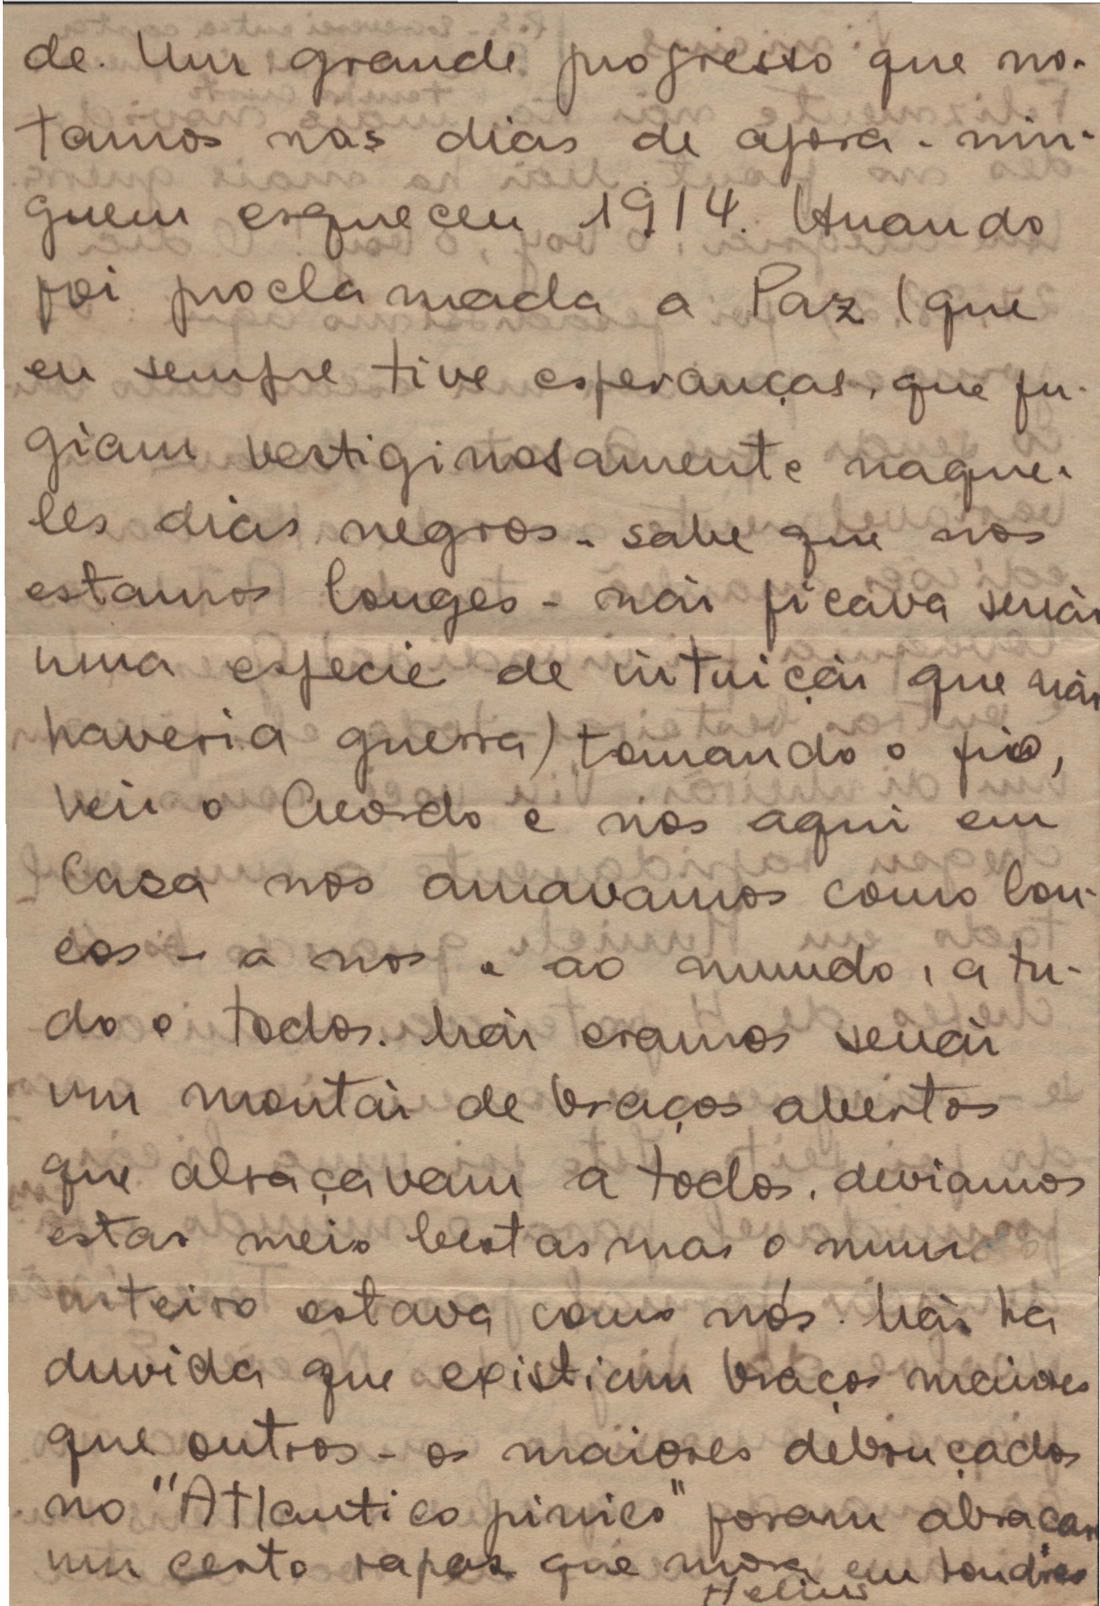 de. Um grande progresso que no-
tamos nas dias de agora - nin-
guem esqueceu 1914. Quando
foi proclamada a Paz (que
eu sempre tive esperanças, que fu-
giam vertiginosamente naque-
les dias negros - sabe que nos
estamos longes - não ficava senão
uma especie de intuição que não
haveria guerra) tomando o fio,
veio o Acordo e nós aqui em
Casa nos amavamos como lou-
cos - a nos e ao mundo, a tu-
do e todos. Não eramos senão
um montão de braços abertos
que abraçavam a todos. deviamos
estar meio bestas mas o mun
inteiro estava como nós. Não ha
duvida que existiam braços maiores
que outros - os maiores debruçados
no "Atlantico pinico" foram abraçar
um certo rapaz que mora em Londres
Helius